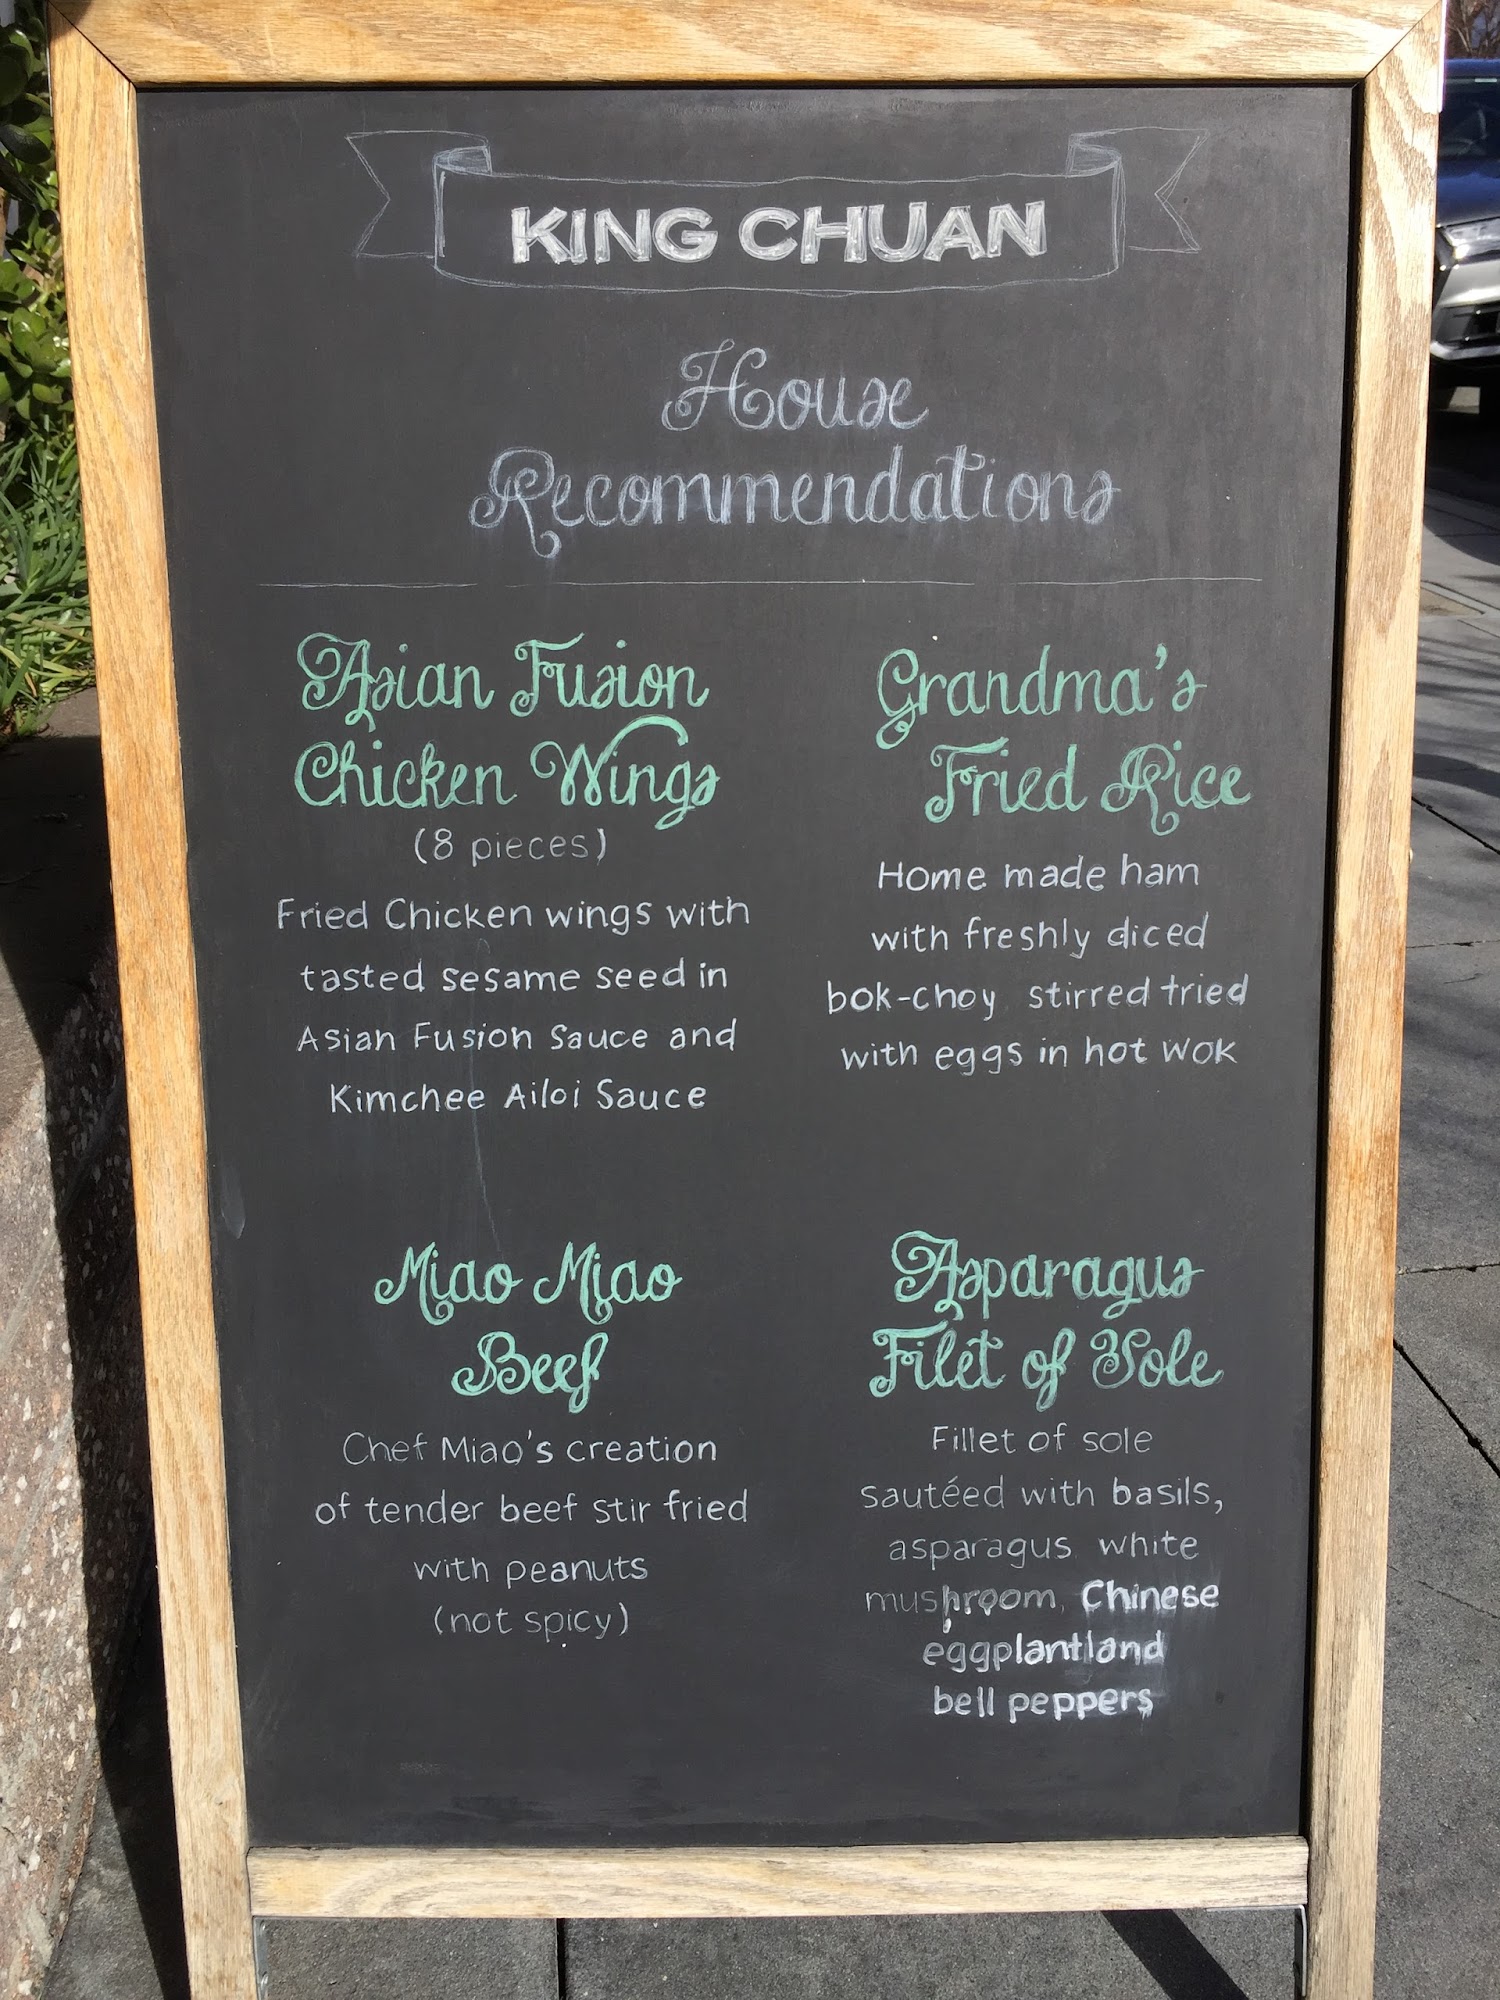 KING CHUAN
House
Recommendations
Asian Fusion
Chicken Wings
(8 pieces)
Fried Chicken wings with
tasted sesame seed in
Asian Fusion Sauce and
Kimchee Ailoi Sauce
Grandma's
Fried Rice
Home made ham
with freshly diced
bok-choy stirred fried
with eggs in hot wok
Miao Miao
Beef
Chef Miao's creation
of tender beef stir fried
with peanuts
(not spicy)
Asparagus
Filet of Sole
Fillet of sole
sautéed with basils,
asparagus white
mushroom, Chinese
eggplant and
bell peppers